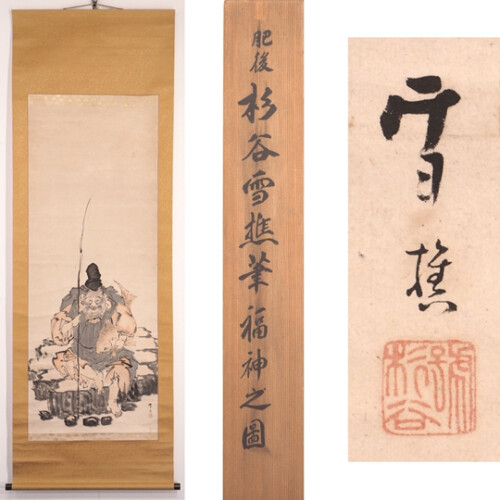 肥後
杉谷雪樵筆福神之圖
雪樵
杉谷